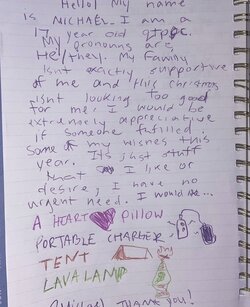 Hello! My name
is MICHAEL. I am a
17 year old qtpoc.
My pronouns are
He/they. My family
isnt exactly supportive
of me and this christmas
isnt looking too good
for me. I would be
extremely appreciative
if someone fufilled
some of my wishes this
year. Its just stuff
that I like or
desire, I have no
urgent need. I would like...
A HEART Pillow
PORTABLE CHARGER
TENT
LAVA LAMP
THANK YOU!